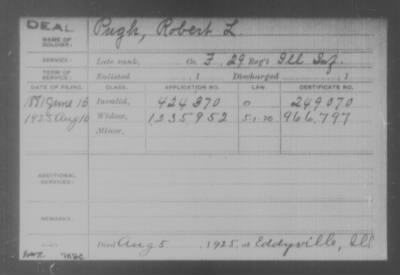 DEAL
NAME OF SOLDIER: Pugh, Robert L.
SERVICE: Late rank, Co. F, 29 Reg't Ill Inf.
TERM OF SERVICE: Enlisted , 1 Discharged , 1
DATE OF FILING. CLASS. APPLICATION NO. LAW. CERTIFICATE NO.
1881 June 15 Invalid, 424370 0 249070
1925 Aug 10 Widow, 1235952 5-1-20 966,797
Minor,
ADDITIONAL SERVICES:
REMARKS:
Died Aug 5, 1925, at Eddyville, Ill